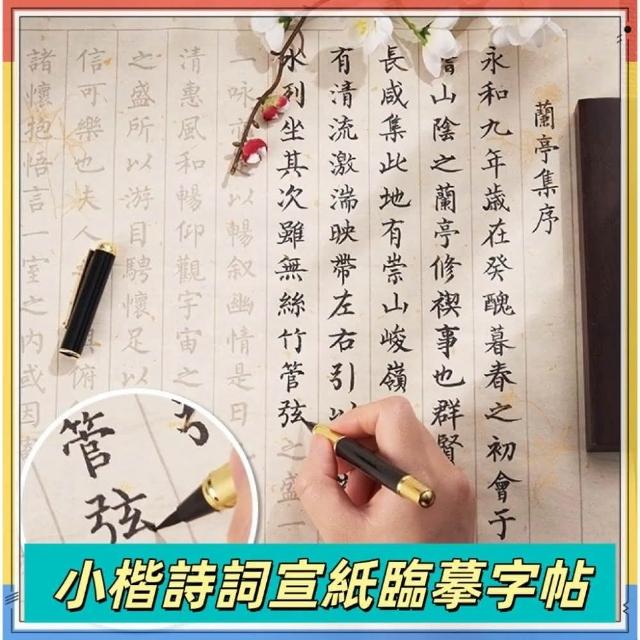 蘭亭集序
永和九年歲在癸醜暮春之初會于
山陰之蘭亭修禊事也群賢
長咸集此地有崇山峻嶺
有清流激湍映帶左右引以
水列坐其次雖無絲竹管弦之盛一
一詠亦以暢叙幽情是日
清惠風和暢仰觀宇宙之
之盛所以游目騁懷足以
信可樂也夫人俱俯
諸懷抱悟言一室之內或因
管弦
小楷詩詞宣紙臨摹字帖